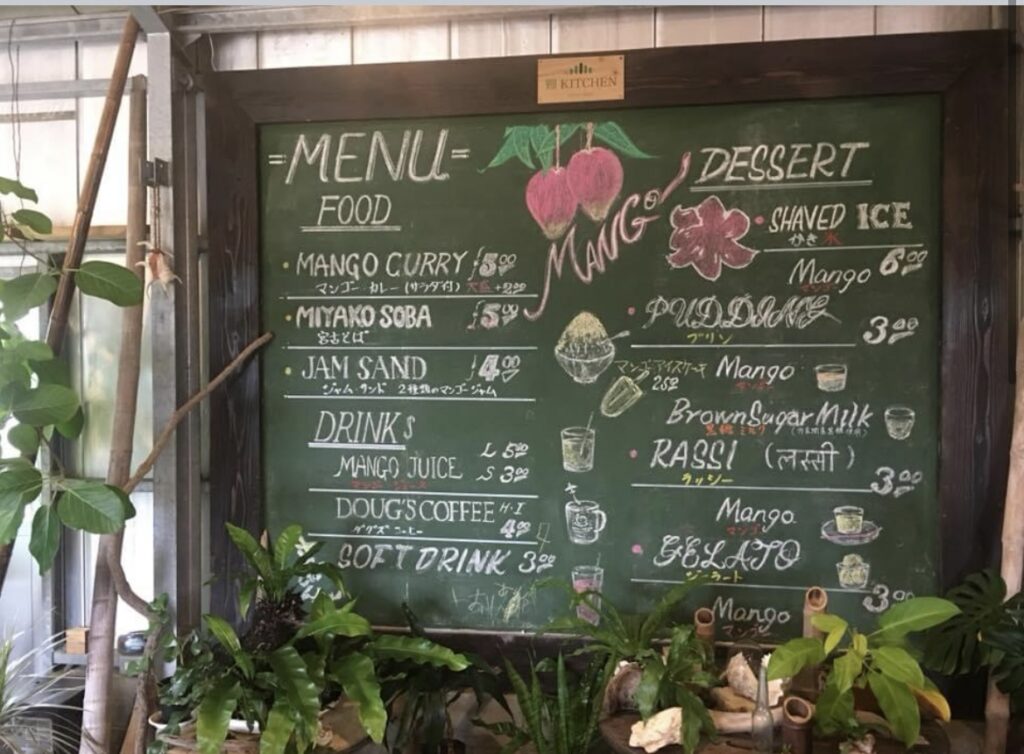 KITCHEN
=MENU=
FOOD
• MANGO CURRY 500
マンゴー カレー (サラダ付) 大盛 +200
• MIYAKO SOBA 500
宮古そば
• JAM SAND 400
ジャム サンド 2種類のマンゴージャム
DRINKS
MANGO JUICE L 500
マンゴ ジュース S 300
DOUG'S COFFEE H・I
ダグズ コーヒー 400
SOFT DRINK 300
MANGO!
DESSERT
• SHAVED ICE
かき氷 600
Mango
マンゴー
PUDDING
プリン 300
マンゴーアイスケーキ 250
Mango
マンゴー
Brown Sugar Milk
黒糖ミルク
• RASSI (लस्सी)
ラッシー 300
Mango
マンゴー
• GELATO
ジェラート 300
Mango
マンゴー